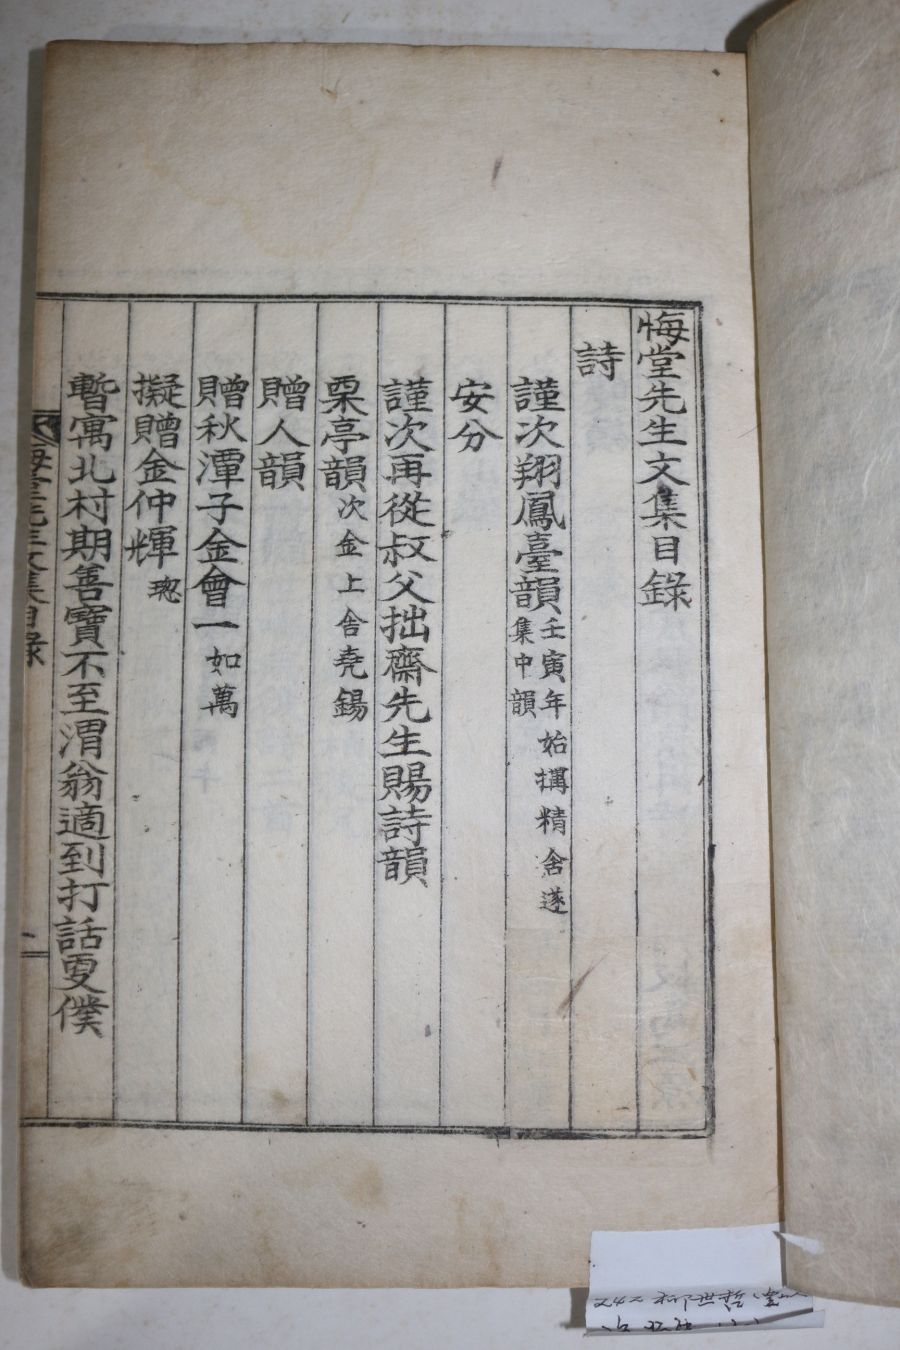 悔堂先生文集目錄
詩
謹次翔鳳臺韻 壬寅年始搆精舍遂
集中韻
安分
謹次再從叔父拙齋先生賜詩韻
栗亭韻 次金上舍堯錫
贈人韻
贈秋潭子金會一 如萬
擬贈金仲輝
暫寓北村期善寶不至渭翁適到打話更僕
悔堂先生文集目錄